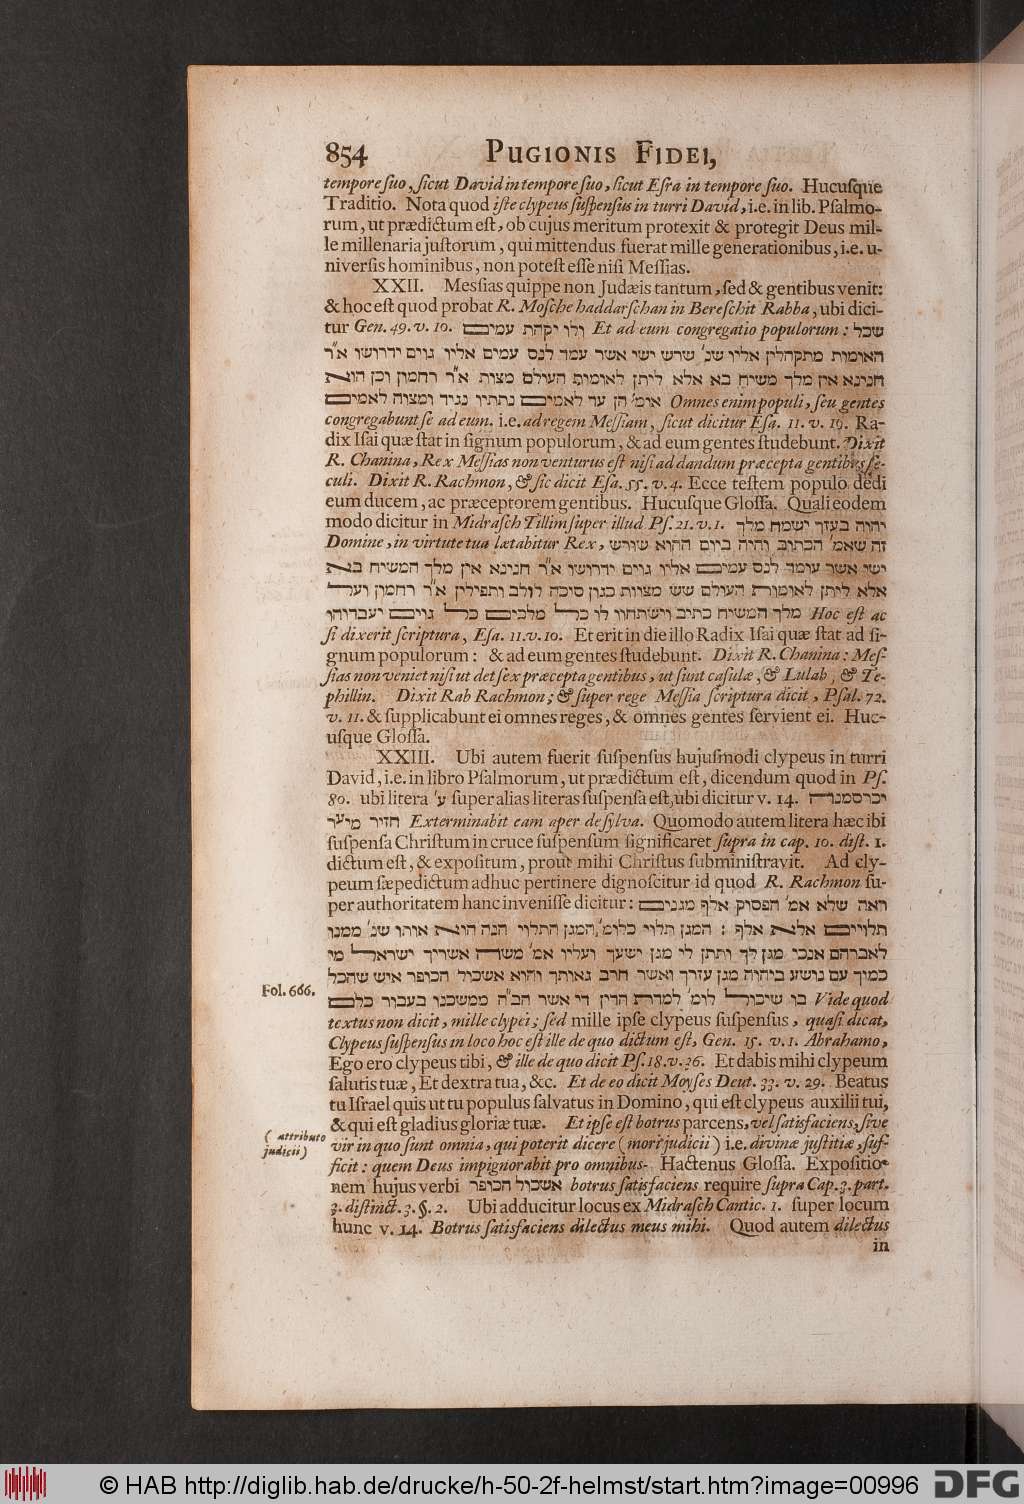 854 PUGIONIS FIDEI,
tempore suo, sicut David in tempore suo, sicut Esra in tempore suo. Hucusque
Traditio. Nota quod iste clypeus suspensus in turri David, i.e. in lib. Psalmo-
rum, ut prædictum est, ob cujus meritum protexit & protegit Deus mil-
le millenaria justorum, qui mittendus fuerat mille generationibus, i.e. u-
niversis hominibus, non potest esse nisi Messias.
XXII. Messias quippe non Judæis tantum, sed & gentibus venit:
& hoc est quod probat R. Mosche haddarschan in Bereschit Rabba, ubi dici-
tur Gen. 49. v. 10. ולו יקהת עמים Et ad eum congregatio populorum: שכל
האומות מתקהלין אליו שנ' שרש ישי אשר עמד לנס עמים אליו גוים ידרושו א"ר
חנינא אין מלך משיח בא אלא ליתן לאומות העולם מצות א"ר רחמון וכן הוא
אומ' הן עד לאמים נתתיו נגיד ומצוה לאמים Omnes enim populi, seu gentes
congregabunt se ad eum. i.e. ad regem Messiam, sicut dicitur Esa. 11. v. 10. Ra-
dix Isai quæ stat in signum populorum, & ad eum gentes studebunt. Dixit
R. Chanina, Rex Messias non venturus est nisi ad dandum præcepta gentibus se-
culi. Dixit R. Rachmon, & sic dicit Esa. 55. v. 4. Ecce testem populo dedi
eum ducem, ac præceptorem gentibus. Hucusque Glossa. Quali eodem
modo dicitur in Midrasch Tillim super illud Ps. 21. v. 1. יהוה בעזך ישמח מלך
Domine, in virtute tua lætabitur Rex, זה שאמ' הכתוב והיה ביום ההוא שורש
ישי אשר עומד לנס עמים אליו גוים ידרושו א"ר חנינא אין מלך המשיח בא
אלא ליתן לאומות העולם שש מצוות כגון סוכה לולב ותפילין א"ר רחמון ועל
מלך המשיח כתיב וישתחוו לו כל מלכים כל גוים יעבדוהו Hoc est ac
si dixerit scriptura, Esa. 11. v. 10. Et erit in die illo Radix Isai quæ stat ad si-
gnum populorum: & ad eum gentes studebunt. Dixit R. Chanina: Mes-
sias non veniet nisi ut det sex præcepta gentibus, ut sunt casulæ, & Lulab, & Te-
phillin. Dixit Rab Rachmon; & super rege Messia scriptura dicit, Psal. 72.
v. 11. & supplicabunt ei omnes reges, & omnes gentes servient ei. Huc-
usque Glossa.
XXIII. Ubi autem fuerit suspensus hujusmodi clypeus in turri
David, i.e. in libro Psalmorum, ut prædictum est, dicendum quod in Ps.
80. ubi litera ע' super alias literas suspensa est, ubi dicitur v. 14. יכרסמנה
חזיר מיער Exterminabit eam aper de sylva. Quomodo autem litera hæc ibi
suspensa Christum in cruce suspensum significaret supra in cap. 10. dist. 1.
dictum est, & expositum, prout mihi Christus subministravit. Ad cly-
peum sæpedictum adhuc pertinere dignoscitur id quod R. Rachmon su-
per authoritatem hanc invenisse dicitur: ראה שלא אמ' הפסוק אלף מגנים
תלויים אלא אלף : המגן תלוי כלומ', המגן התלוי הנה הוא אותו שנ' ממנו
לאברהם אנכי מגן לך ותתן לי מגן ישעך ועליו אמ' משה אשריך ישראל מי
כמיך עם נושע ביהוה מגן עזרך ואשר חרב גאותך והוא אשכיל הכופר איש שהכל
Fol. 666.
בו שיכול לומ' למדת הדין די אשר הב"ה ממשכנו בעבור כלם Vide quod
textus non dicit, mille clypei; sed mille ipse clypeus suspensus, quasi dicat,
Clypeus suspensus in loco hoc est ille de quo dictum est, Gen. 15. v. 1. Abrahamo,
Ego ero clypeus tibi, & ille de quo dicit Ps. 18. v. 36. Et dabis mihi clypeum
salutis tuæ, Et dextra tua, &c. Et de eo dicit Moyses Deut. 33. v. 29. Beatus
tu Israel quis ut tu populus salvatus in Domino, qui est clypeus auxilii tui,
& qui est gladius gloriæ tuæ. Et ipse est botrus parcens, vel satisfaciens, sive
(attributo
judicii)
vir in quo sunt omnia, qui poterit dicere (mori judicii) i.e. divinæ justitiæ, suf-
ficit: quem Deus impignorabit pro omnibus. Hactenus Glossa. Expositio-
nem hujus verbi אשכול הכופר botrus satisfaciens require supra Cap. 3. part.
3. distinct. 3. §. 2. Ubi adducitur locus ex Midrasch Cantic. 1. super locum
hunc v. 14. Botrus satisfaciens dilectus meus mihi. Quod autem dilectus
in
© HAB http://diglib.hab.de/drucke/h-50-2f-helmst/start.htm?image=00996 DFG